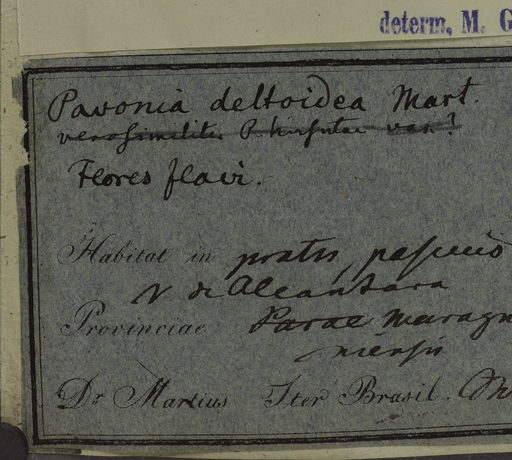 determ. M. G
Pavonia deltoidea Mart.
verosimiliter P. hirsutae var.?
Flores flavi.
Habitat in pratis, pascuis
V. de Alcantara
Provinciae Parae Maragn
niensis
Dr Martius Iter Brasil.